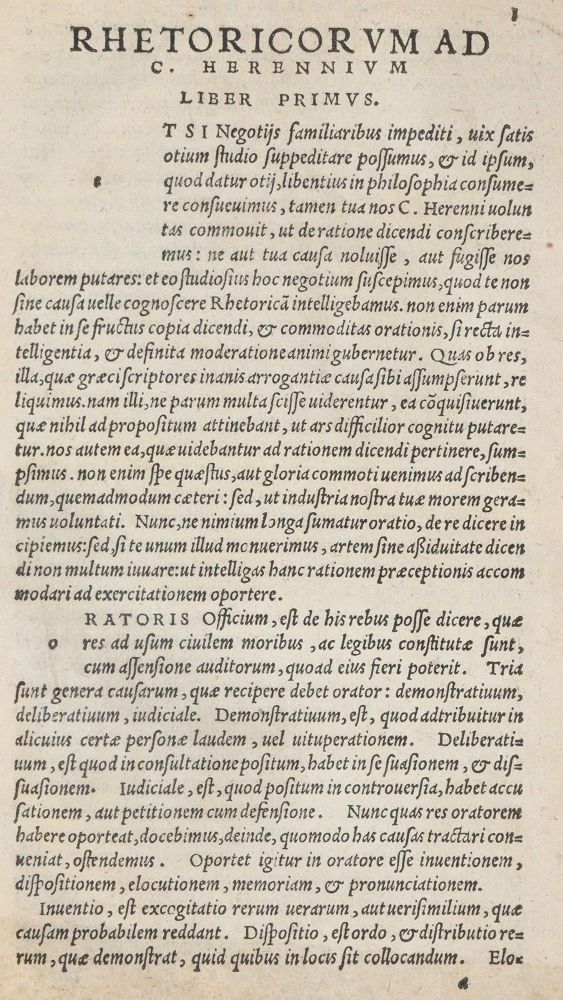 1
RHETORICORVM AD
C. HERENNIVM
LIBER PRIMVS.
TSI Negotijs familiaribus impediti, uix satis
otium studio suppeditare possumus, & id ipsum,
e quod datur otij, libentius in philosophia consume=
re consueuimus, tamen tua nos C. Herenni uolun
tas commouit, ut de ratione dicendi conscribere=
mus: ne aut tua causa noluisse, aut fugisse nos
laborem putares: et eo studiosius hoc negotium suscepimus, quod te non
sine causa uelle cognoscere Rhetoricā intelligebamus. non enim parum
habet in se fructus copia dicendi, & commoditas orationis, si recta in=
telligentia, & definita moderatione animi gubernetur. Quas ob res,
illa, quæ græci scriptores inanis arrogantiæ causa sibi assumpserunt, re
liquimus. nam illi, ne parum multa scisse uiderentur, ea cōquisiuerunt,
quæ nihil ad propositum attinebant, ut ars difficilior cognitu putare=
tur. nos autem ea, quæ uidebantur ad rationem dicendi pertinere, sum=
psimus. non enim spe quæstus, aut gloria commoti uenimus ad scriben=
dum, quemadmodum cæteri: sed, ut industria nostra tuæ morem gera=
mus uoluntati. Nunc, ne nimium longa sumatur oratio, de re dicere in
cipiemus: sed, si te unum illud monuerimus, artem sine aßiduitate dicen
di non multum iuuare: ut intelligas hanc rationem præceptionis accom
modari ad exercitationem oportere.
RATORIS Officium, est de his rebus posse dicere, quæ
o res ad usum ciuilem moribus, ac legibus constitutæ sunt,
cum assensione auditorum, quoad eius fieri poterit. Tria
sunt genera causarum, quæ recipere debet orator: demonstratiuum,
deliberatiuum, iudiciale. Demonstratiuum, est, quod adtribuitur in
alicuius certæ personæ laudem, uel uituperationem. Deliberati=
uum, est quod in consultatione positum, habet in se suasionem, & dis=
suasionem. Iudiciale, est, quod positum in controuersia, habet accu
sationem, aut petitionem cum defensione. Nunc quas res oratorem
habere oporteat, docebimus, deinde, quomodo has causas tractari con=
ueniat, ostendemus. Oportet igitur in oratore esse inuentionem,
dispositionem, elocutionem, memoriam, & pronunciationem.
Inuentio, est excogitatio rerum uerarum, aut uerisimilium, quæ
causam probabilem reddant. Dispositio, est ordo, & distributio re=
rum, quæ demonstrat, quid quibus in locis sit collocandum. Elo=
a